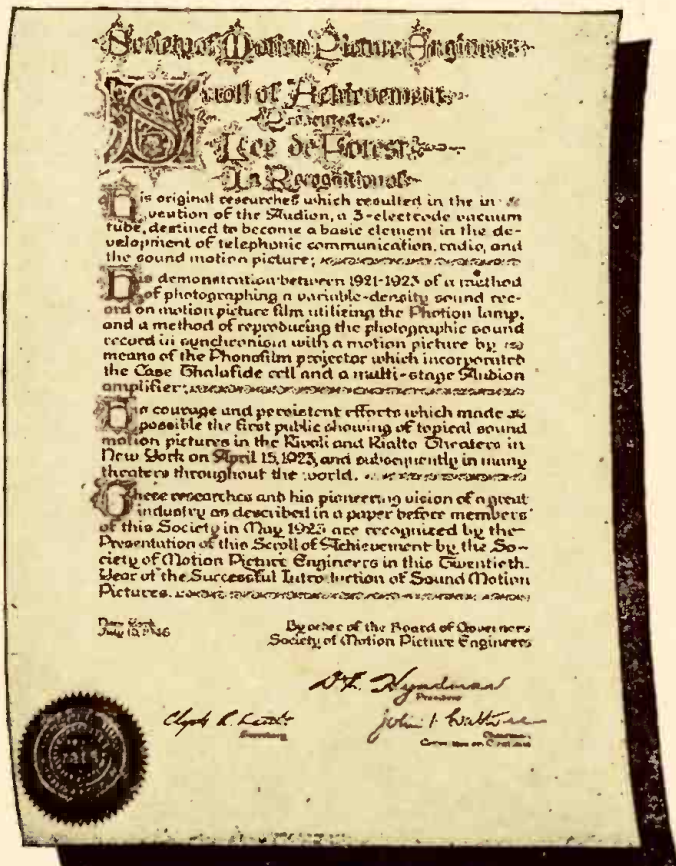 Society of Motion Picture Engineers
Scroll of Achievement
Presented to
Lee de Forest
In Recognition of
His original researches which resulted in the in-
vention of the Audion, a 3-electrode vacuum
tube, destined to become a basic element in the de-
velopment of telephonic communication, radio, and
the sound motion picture;
His demonstration between 1921-1923 of a method
of photographing a variable-density sound rec-
ord on motion picture film utilizing the Photion lamp,
and a method of reproducing the photographic sound
record in synchronism with a motion picture by
means of the Phonofilm projector which incorporated
the Case Thalofide cell and a multi-stage Audion
amplifier;
His courage and persistent efforts which made
possible the first public showing of topical sound
motion pictures in the Rivoli and Rialto Theaters in
New York on April 15, 1923, and subsequently in many
theaters throughout the world.
These researches and his pioneering vision of a great
industry as described in a paper before members
of this Society in May 1923 are recognized by the
Presentation of this Scroll of Achievement by the So-
ciety of Motion Picture Engineers in this Twentieth
Year of the Successful Introduction of Sound Motion
Pictures.
New York
July 10, 1946
By order of the Board of Governors
Society of Motion Picture Engineers
Hyndman
President
Clyde R.
Secretary
John I.
Chairman
Committee on